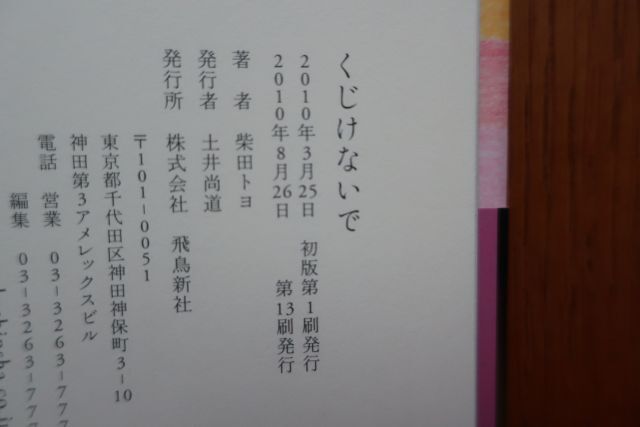 くじけないで
2010年3月25日 初版第1刷発行
2010年8月26日 第13刷発行
著者 柴田トヨ
発行者 土井尚道
発行所 株式会社 飛鳥新社
〒101-0051
東京都千代田区神田神保町3-10
神田第3アメレックスビル
電話 営業 03-3263-777
編集 03-3263-777